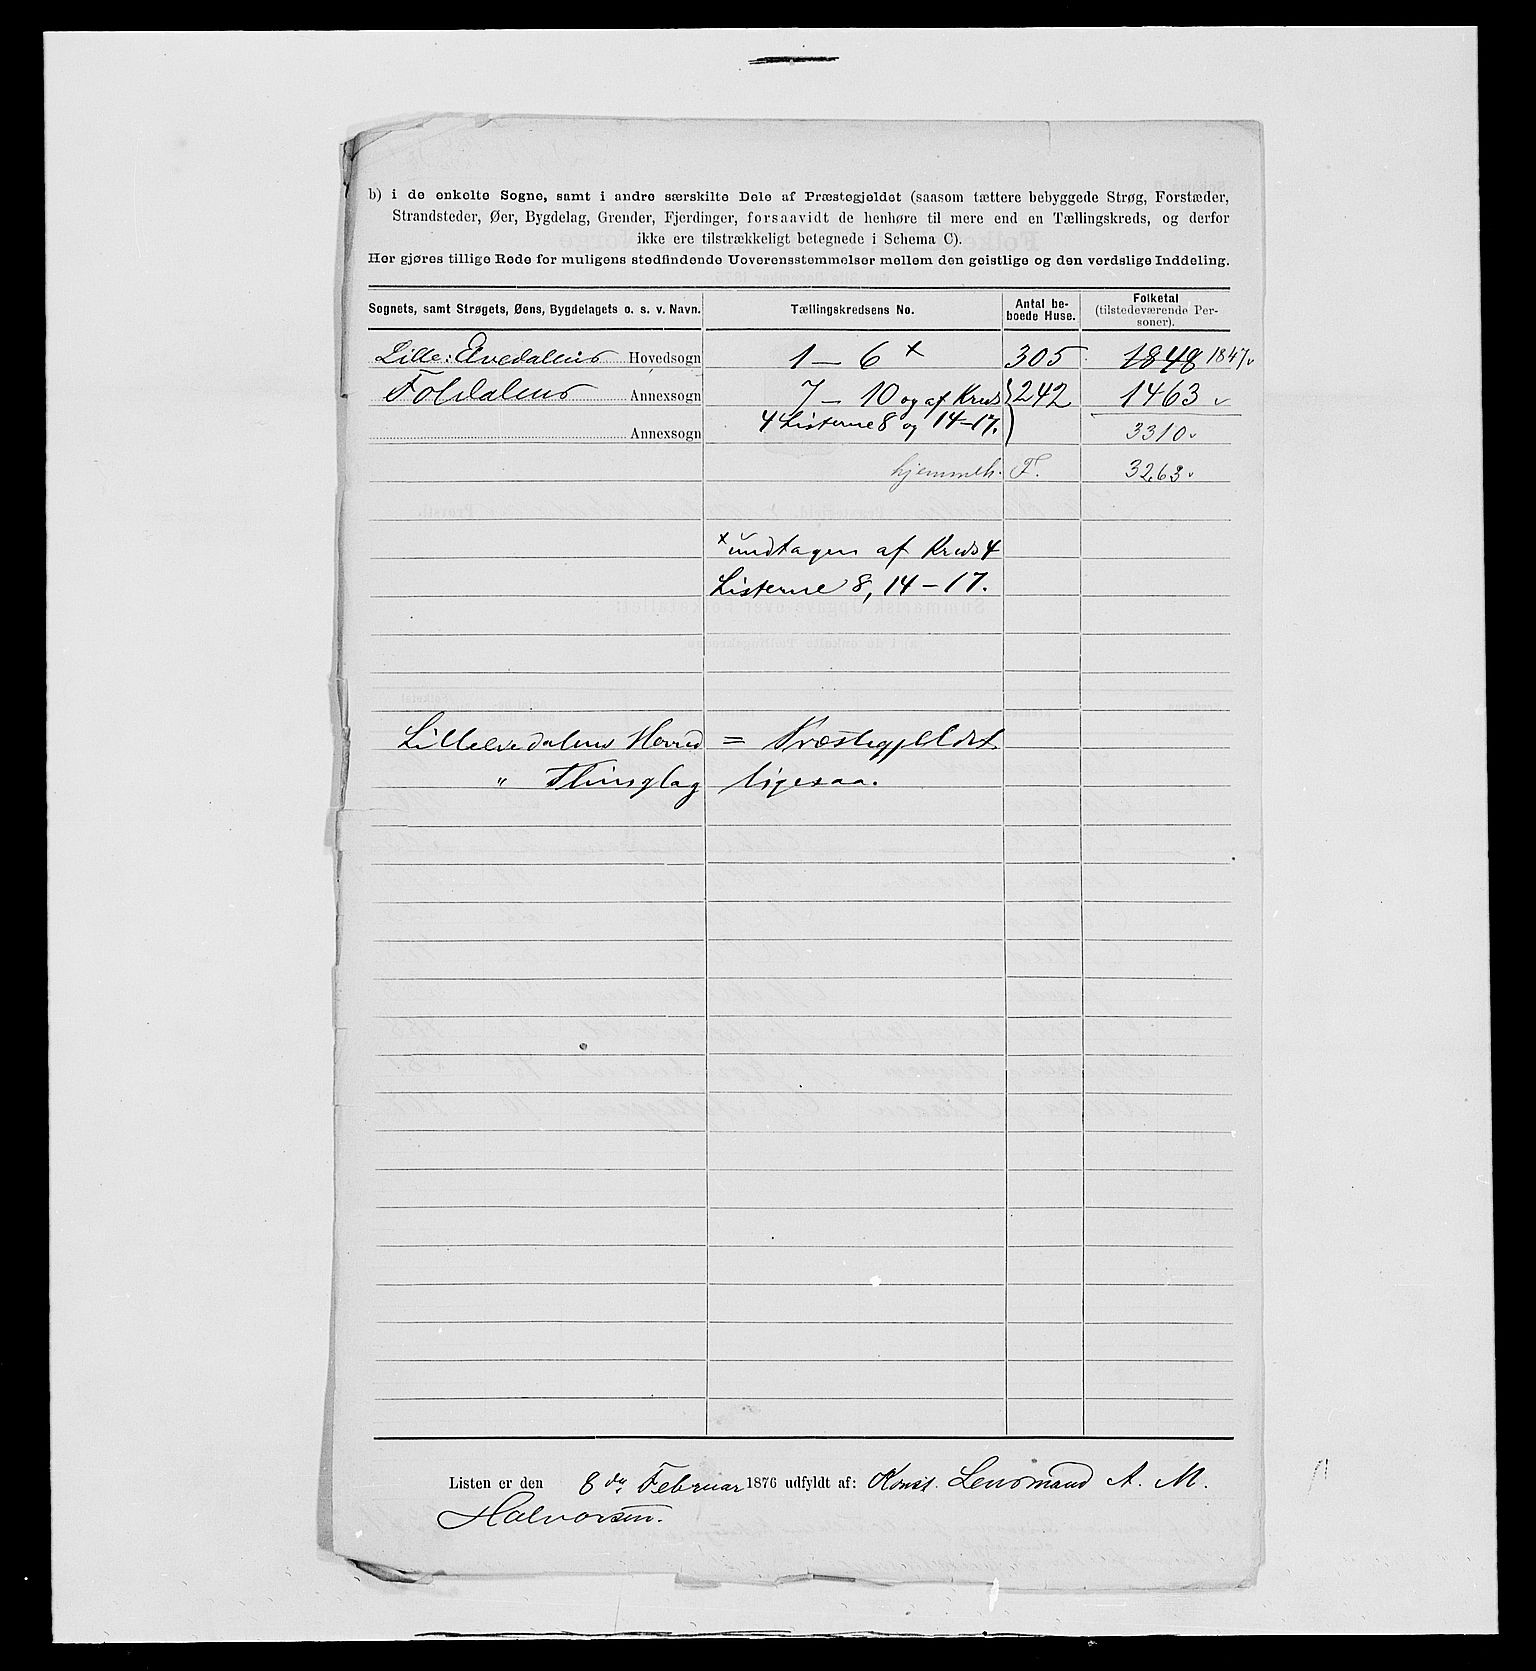 b) i de enkelte Sogne, samt i andre særskilte Dele af Præstegjeldet (saasom tættere bebyggede Strøg, Forstæder,
Strandsteder, Øer, Bygdelag, Grender, Fjerdinger, forsaavidt de henhøre til mere end en Tællingskreds, og derfor
ikke ere tilstrækkeligt betegnede i Schema C).
Her gjøres tillige Rede for muligens stedfindende Uoverensstemmelser mellem den geistlige og den verdslige Inddeling.
Sognets, samt Strøgets, Øens, Bygdelagets o. s. v. Navn. Tællingskredsens No. Antal be-boede Huse. Folketal (tilstedeværende Per-soner).
Lille: Elvedalens Hovedsogn 1 – 6 x 305 1848 1847
Foldalens Annexsogn 7 – 10 og af Kreds 242 1463
Annexsogn 4 Listerne 8 og 14–17. 3310
hjemmeh. F. 3263
x undtagen af Kreds 4
Listerne 8, 14 – 17.
Lilleelvedalens Herred = Præstegjeldet
" Thinglag ligesaa.
Listen er den 8de Februar 1876 udfyldt af: Konst. Lensmand A. M.
Halvorsen.